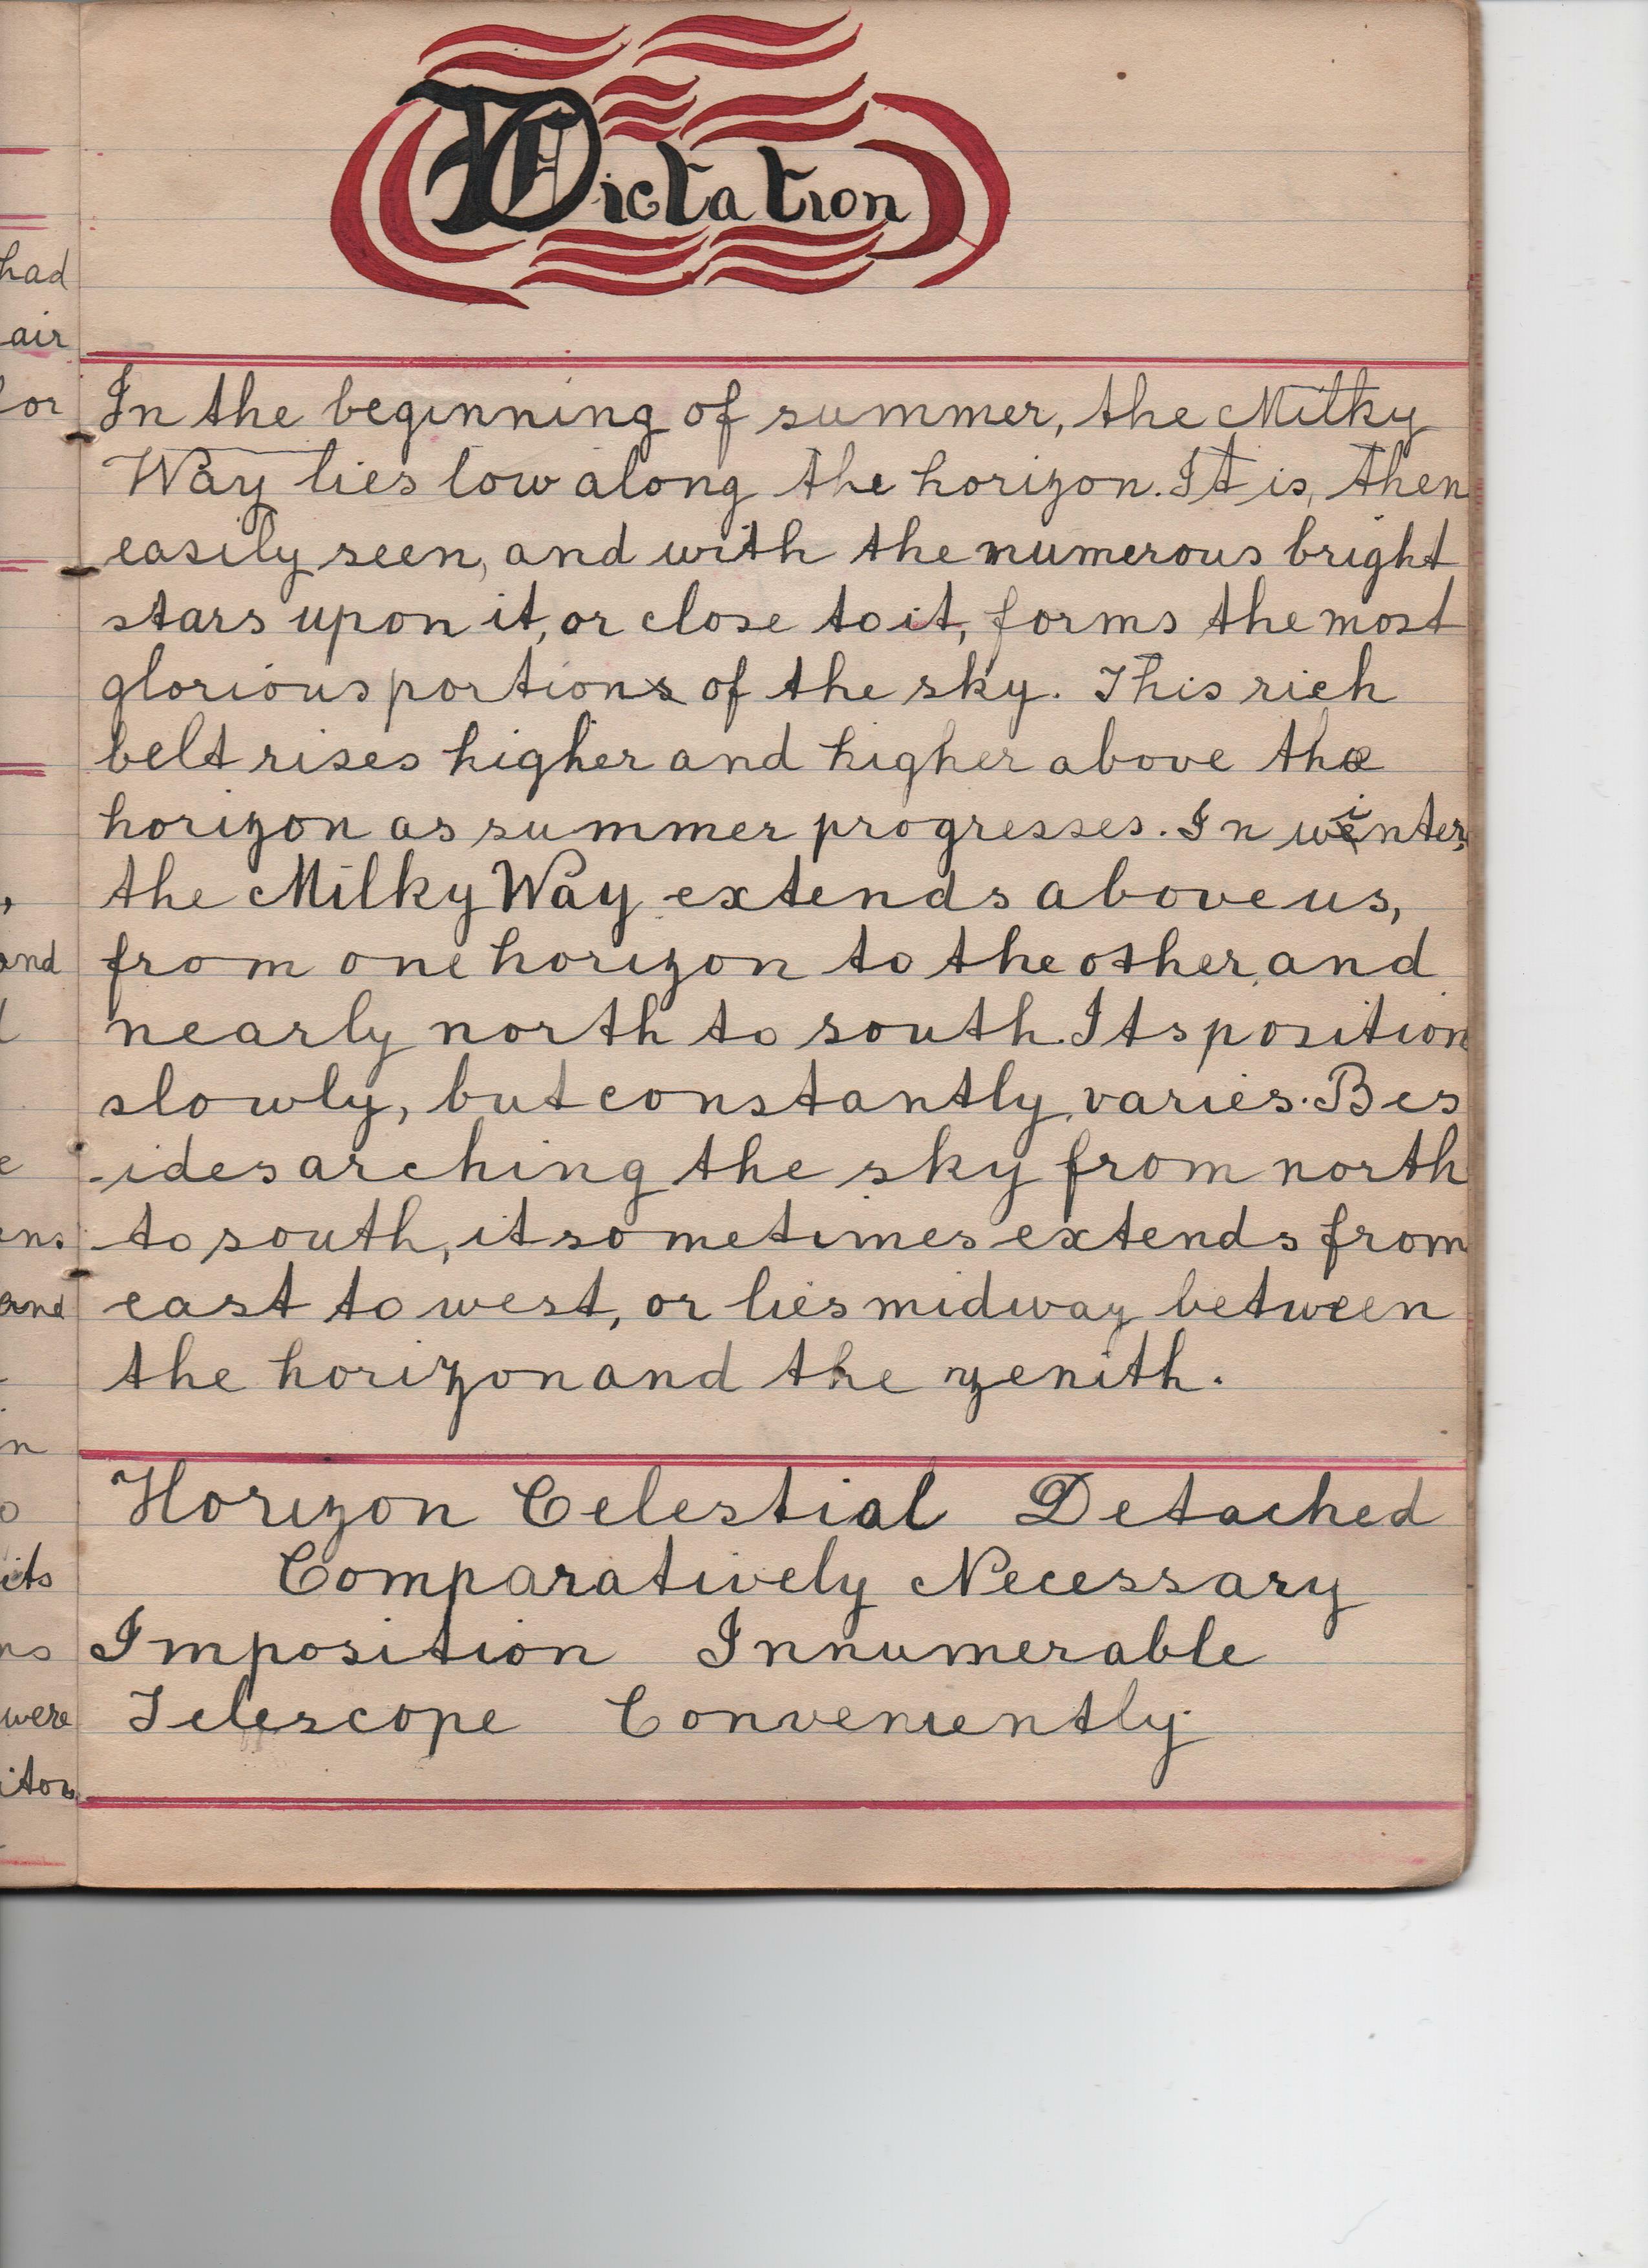 had
air
or
and
ens.
and
n
its
ns
were
Dictation
In the beginning of summer, the Milky
Way lies low along the horizon. It is, then
easily seen, and with the numerous bright
stars upon it, or close to it, forms the most
glorious portions of the sky. This rich
belt rises higher and higher above the
horizon as summer progresses. In winter,
the Milky Way extends above us,
from one horizon to the other, and
nearly north to south. Its position
slowly, but constantly, varies. Bes
-ides arching the sky from north
to south, it sometimes extends from
east to west, or lies midway between
the horizon and the zenith.
Horizon Celestial Detached
Comparatively Necessary
Imposition Innumerable
Telescope Conveniently.